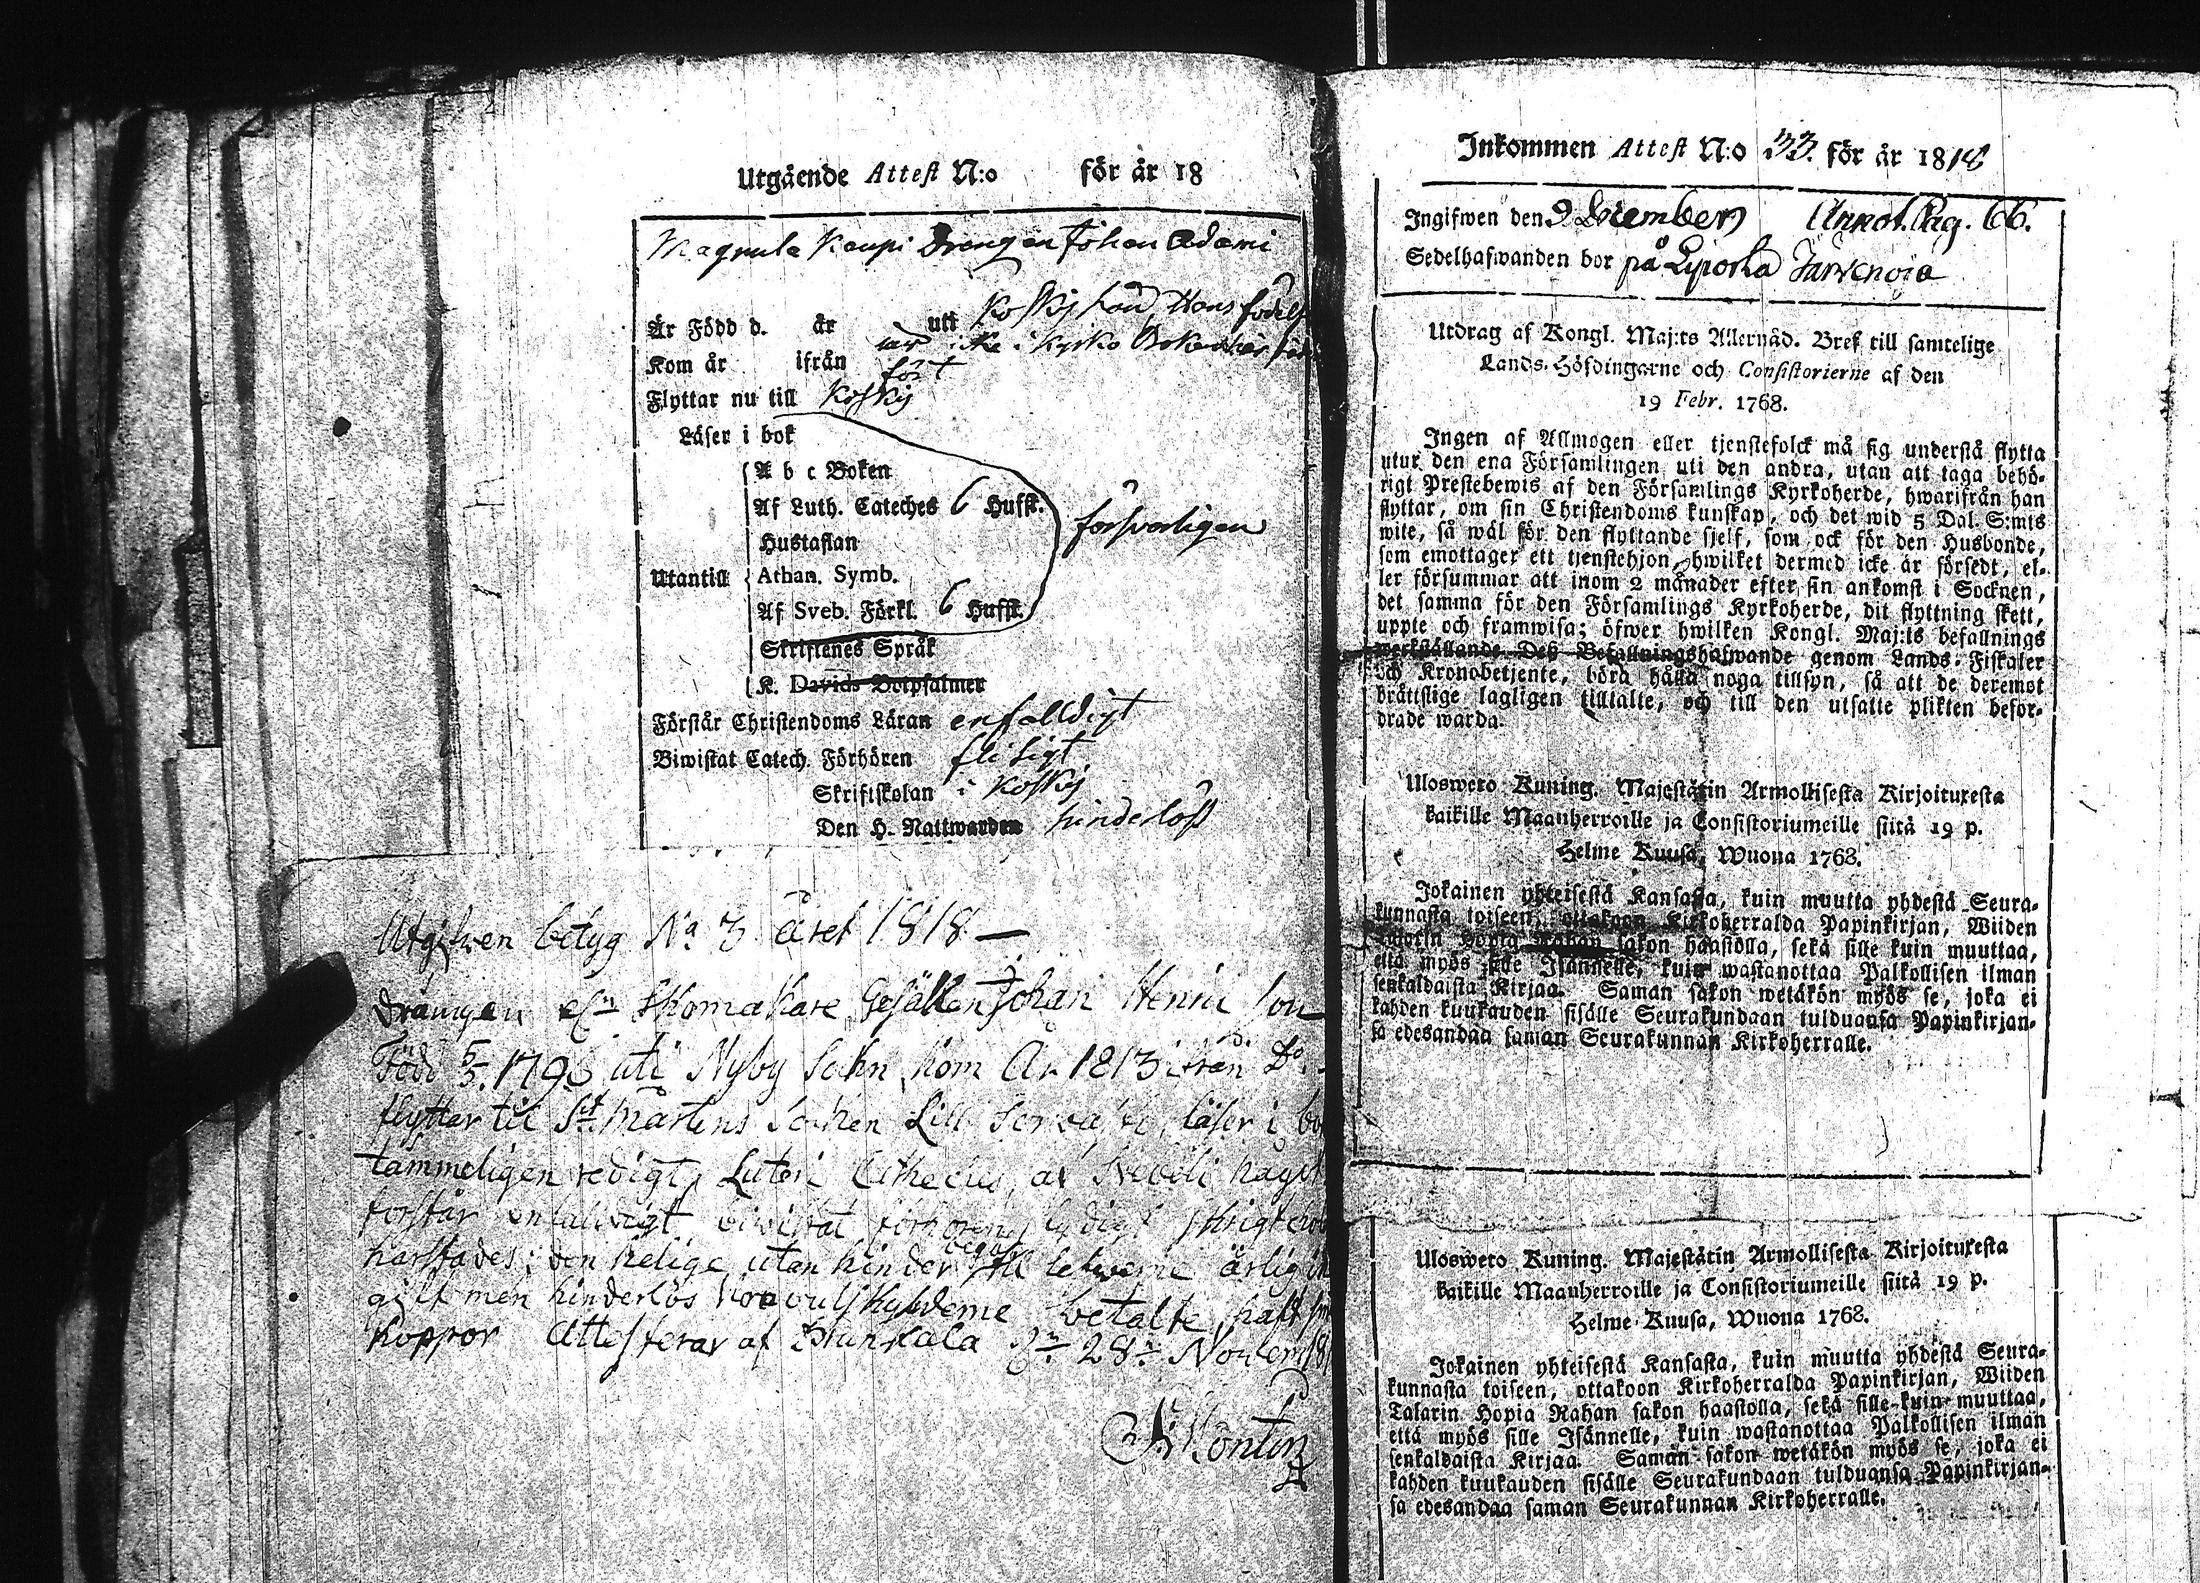 Utgående Attest N:o för år 18
Magnula Kaupi Drengen Johan Adami
Är Född d. år uti Koskis
Hans födels
Kom år ifrån icke i kyrko
fört
Flyttar nu till Koskis
Läser i bok
A b c Boken
Af Luth. Cateches 6 Hufst.
försvarligen
Hustaflan
Utantill
Athan. Symb.
Af Sveb. Förkl. 6 Hufst.
Skriftenes Språk
K. Davids Botpsalmer
Förstår Christendoms Läran enfalldigt
Biwistat Catech. Förhören flitigt
Skriftskolan i Koskis
Den H. Nattwarden hinderlöst
Utgifven betyg No 3 året 1818 —
Drängen Skomakare Gesällen Johan Henric
Född 5/5. 1796 uti Nyby Sokn kom År 1813 ifrån Do.
flyttar til St Mårtens Soknen Lill läser i
tämmeligen redigt, Luteri Cateches, af Svebeli någ
förstår enfalldigt biwistat förhören
den helige utan hinder till lefverne ärlig
gift men hinderlös betalte, haft
Koppor Attesterar af Brunkala 28 Novem 18
Inkommen Attest N:o 33. för år 1818
Ingifwen den 9 December Annot. Pag. 66.
Sedelhafwanden bor på Liposka Järvenoja
Utdrag af Kongl. Maj:ts Allernåd. Bref till samtelige
Lands-Höfdingarne och Consistorierne af den
19 Febr. 1768.
Ingen af Allmogen eller tjenstefolck må sig understå flytta
utur den ena Församlingen uti den andra, utan att taga behö-
rigt Prestebewis af den Församlings Kyrkoherde, hwarifrån han
flyttar, om sin Christendoms kunskap, och det wid 5 Dal. S:mts
wite, så wäl för den flyttande sjelf, som ock för den Husbonde,
som emottager ett tjenstehjon, hwilket dermed icke är försedt, el-
ler försummar att inom 2 månader efter sin ankomst i Socknen,
det samma för den Församlings Kyrkoherde, dit flyttning skett,
uppte och framwisa; öfwer hwilken Kongl. Maj:ts befallnings
werkställande Deß Befallningshafwande genom Lands-Fiskaler
och Kronobetjente, böra hålla noga tillsyn, så att de deremot
bråttslige lagligen tilltalte, och till den utsatte plikten befor-
drade warda.
Uloswero Kuning. Majestätin Armollisesta Kirjoituxesta
kaikille Maanherroille ja Consistoriumeille siitä 19 p.
Helme Kuusa, Wuona 1768.
Jokainen yhteisestä Kansasta, kuin muutta yhdestä Seura-
kunnasta toiseen, ottakoon Kirkoherralda Papinkirjan, Wiiden
Talarin Hopia Rahan sakon haastolla, sekä sille kuin muuttaa,
että myös sille Isännelle, kuin wastanottaa Palkollisen ilman
senkaldaista Kirjaa. Saman sakon wetäkön myös se, joka ei
kahden kuukauden sisälle Seurakundaan tulduansa Papinkirjan-
sa edesandaa saman Seurakunnan Kirkoherralle.
Uloswero Kuning. Majestätin Armollisesta Kirjoituxesta
kaikille Maanherroille ja Consistoriumeille siitä 19 p.
Helme Kuusa, Wuona 1768.
Jokainen yhteisestä Kansasta, kuin muutta yhdestä Seura-
kunnasta toiseen, ottakoon Kirkoherralda Papinkirjan, Wiiden
Talarin Hopia Rahan sakon haastolla, sekä sille kuin muuttaa,
että myös sille Isännelle, kuin wastanottaa Palkollisen ilman
senkaldaista Kirjaa. Saman sakon wetäkön myös se, joka ei
kahden kuukauden sisälle Seurakundaan tulduansa Papinkirjan-
sa edesandaa saman Seurakunnan Kirkoherralle.